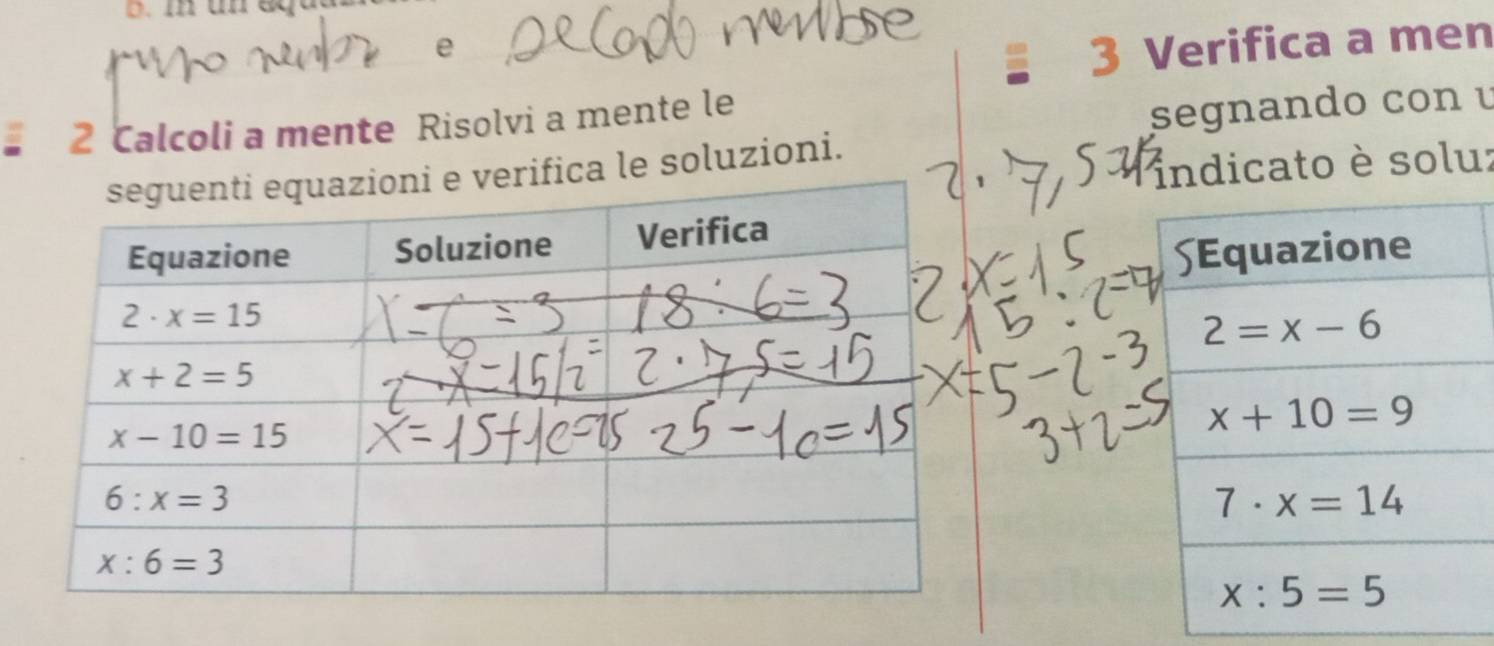 e
2 Calcoli a mente Risolvi a mente le
seguenti equazioni e verifica le soluzioni.
Equazione Soluzione Verifica
2 · x = 15 18 : 6 = 3
x + 2 = 5 2 · 7,5 = 15
x − 10 = 15 x = 15 + 10 = 25 25 − 10 = 15
6 : x = 3
x : 6 = 3
2 · 7,5
2 · x = 15
15 : 2 = 7
x = 5 − 2 − 3
3 + 2 = 5
3 Verifica a men
segnando con u
indicato è soluz
Equazione
2 = x − 6
x + 10 = 9
7 · x = 14
x : 5 = 5